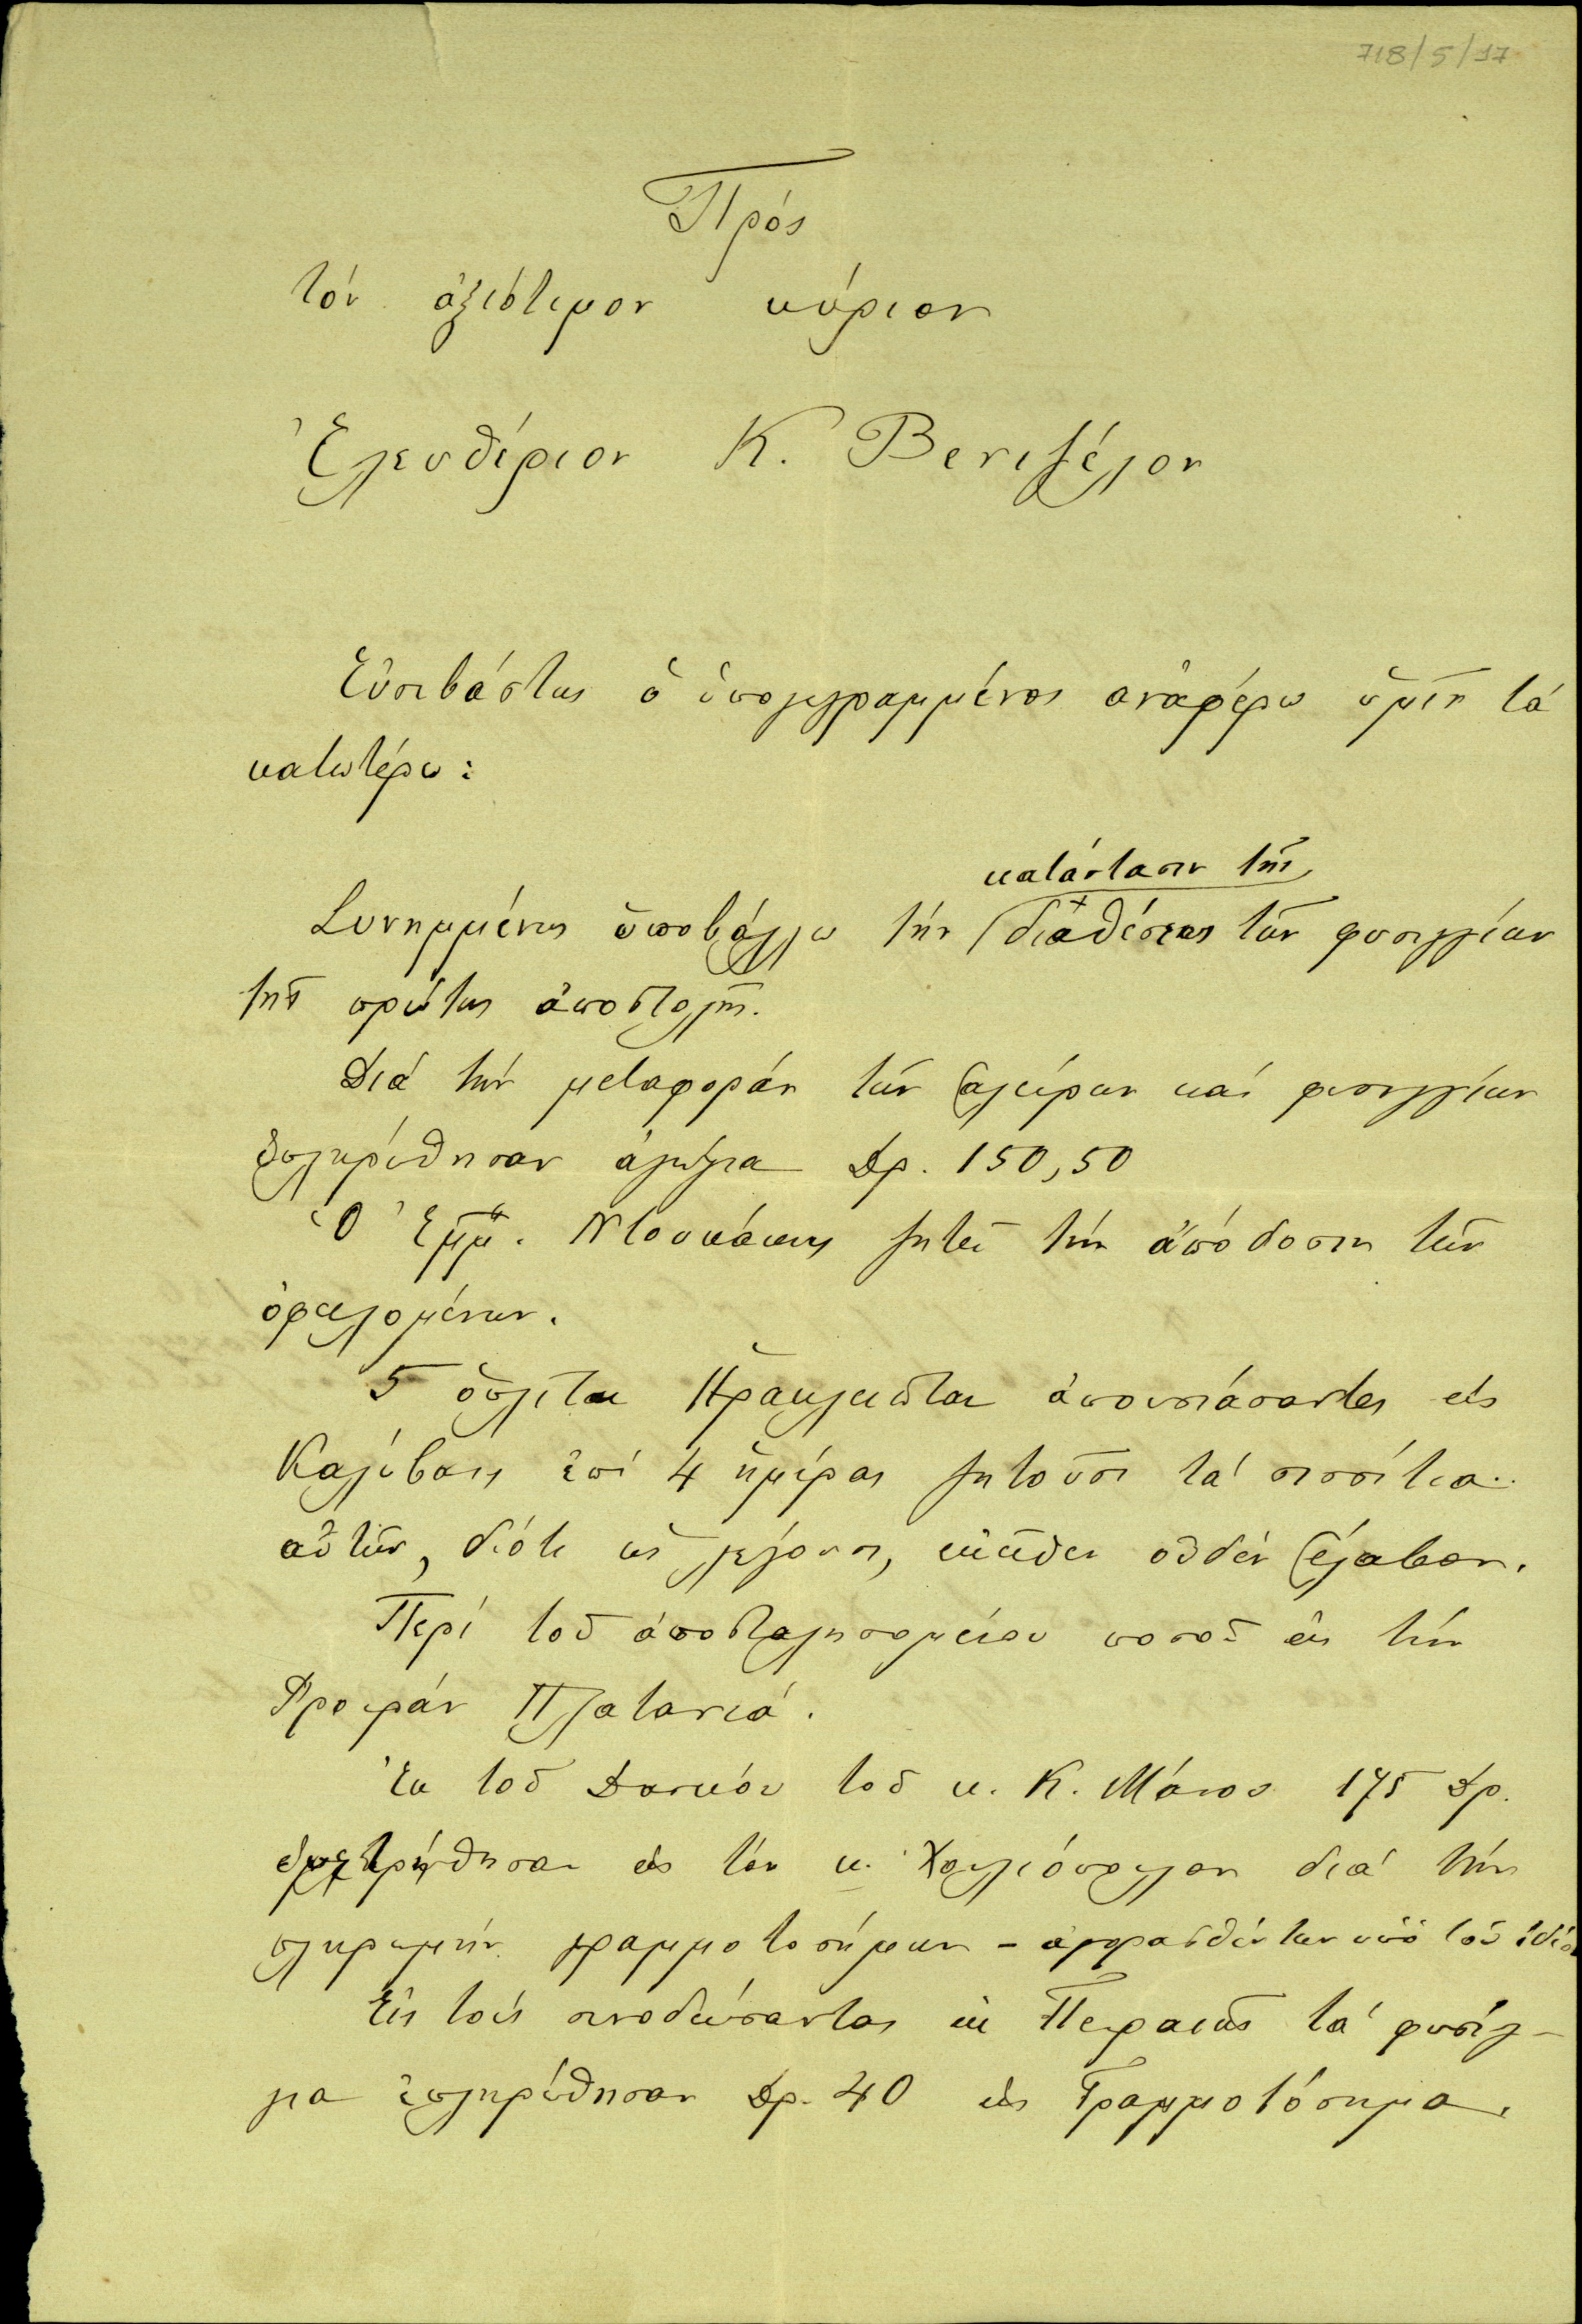 718/5/17
Πρός
τόν ἀξιότιμον κύριον
Ἐλευθέριον Κ. Βενιζέλον
Εὐσεβάστως ὁ ὑπογεγραμμένος ἀναφέρω ὑμῖν τά
κατωτέρω:
κατάστασιν τῆς
Συνημμένως ὑποβάλλω τήν διαθέσεως τῶν φυσιγγίων
τῆς πρώτης ἀποστολῆς.
Διά τήν μεταφοράν τῶν ἀλεύρων καί φυσιγγίων
ἐπληρώθησαν ἀγώγια Δρ. 150,50
Ὁ Ἐμμ. Ντουκάκης ζητεῖ τήν ἀπόδοσιν τῶν
ὀφειλομένων.
5 ὁπλῖται Ἡρακλειῶται ἀπουσιάσαντες εἰς
Καλύβας ἐπί 4 ἡμέρας ζητοῦσι τά σισσίτια
αὐτῶν, διότι ὡς λέγουσι, ἐκεῖθεν οὐδέν ἔλαβον.
Περί τοῦ ἀποσταλησομένου ποσοῦ εἰς τήν
Φρουράν Πλατανιᾶ.
Ἐκ τοῦ Δανείου τοῦ κ. Κ. Μάνου 175 Δρ.
εἰς τόν κ. διά τήν
πληρωμήν γραμματοσήμων - ἀγορασθέντων ὑπό τοῦ ἰδίου
Εἰς τούς συνοδεύσαντας ἐκ Πειραιῶς τά φυσίγ-
για ἐπληρώθησαν Δρ. 40 εἰς Γραμματόσημα.